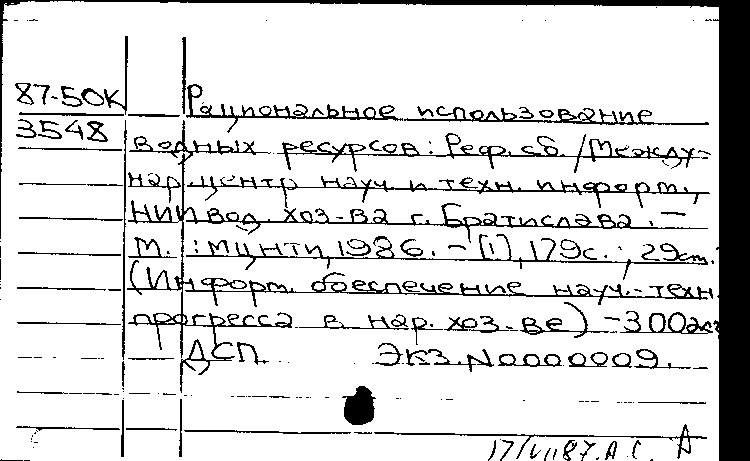 87-50К
3548
Рациональное использование
водных ресурсов: Реф. сб. /Между-
нар. центр науч. и техн. информ.,
НИИ вод. хоз-ва г. Братислава. –
М. : МЦНТИ, 1986. – [1], 179с. ; 29см.
(Информ. обеспечение науч.-техн.
прогресса в нар. хоз-ве) – 300экз
ДСП. ЭКЗ. N0000009.
17/VII87. А.С. А